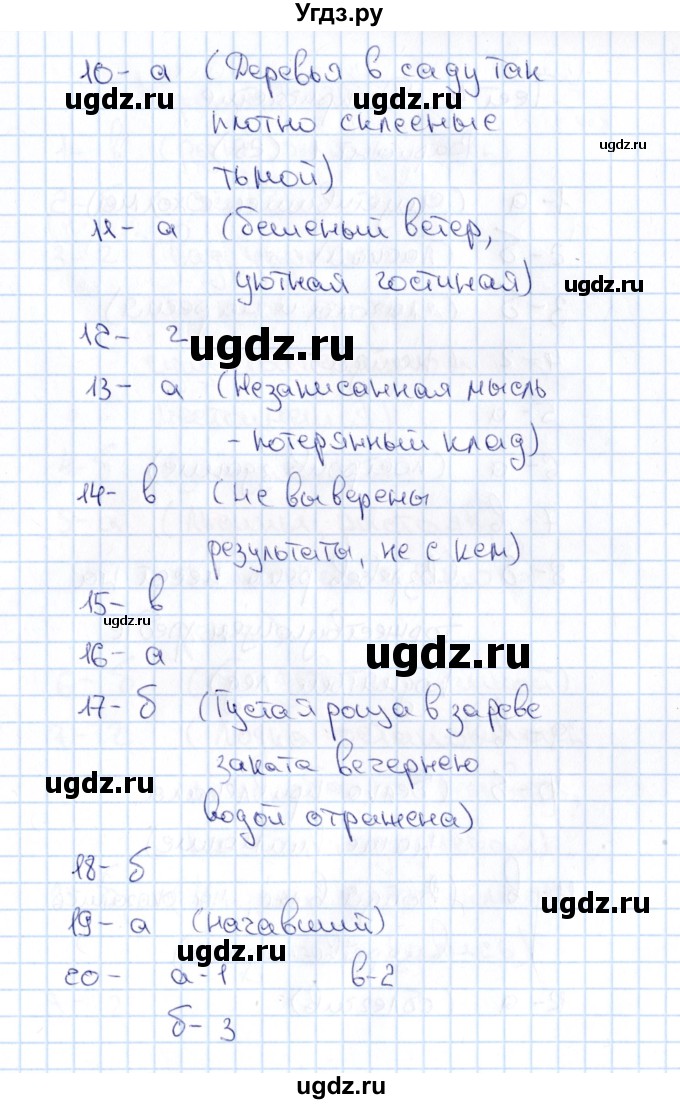 Угдз.ру
10- а (Деревья в саду так
ugdz.ru ugdz.ru
плотно склееные
ugdz.ru
тьмой)
11- а (бешеный ветер,
уютная гостиная)
ugdz.ru
12- г
ugdz.ru
13- а (Незаписанная мысль
- потерянный клад)
14- в (не выверены
результаты, не с кем)
15- в
ugdz.ru
16- а
ugdz.ru
17- б (Густая роща в зареве
заката вечернею
ugdz.ru
водой отражена)
18- б
ugdz.ru
19- а (начавший)
ugdz.ru
20- а-1 в-2
б- 3
ugdz.ru